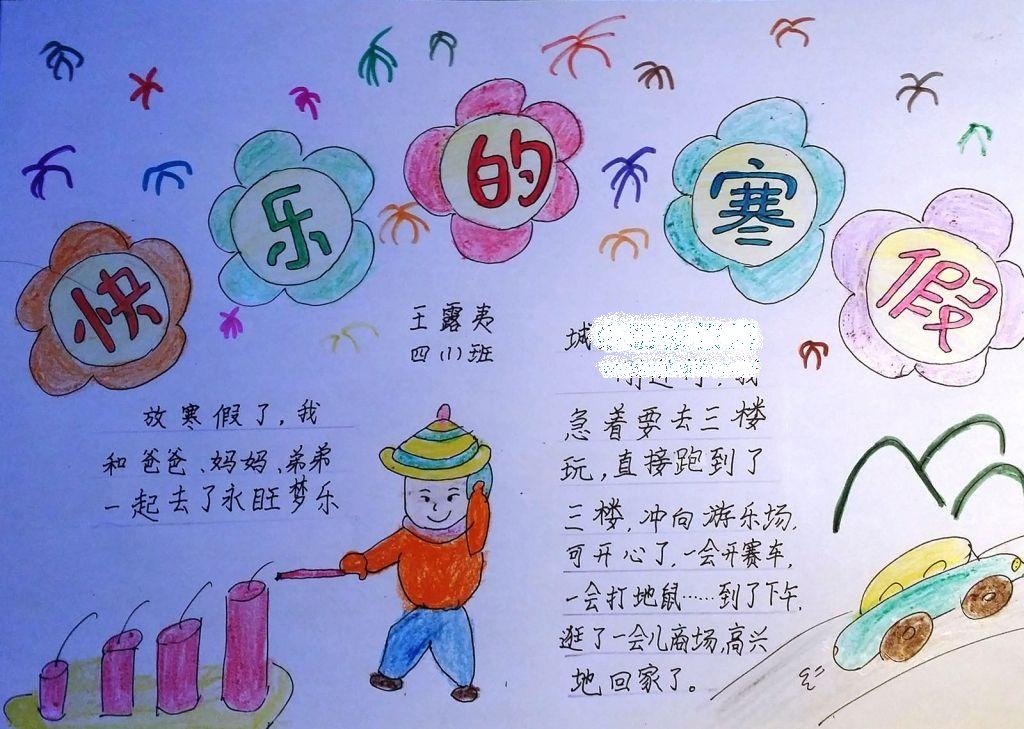 快乐的寒假
王露夷
四(1)班
放寒假了，我
和爸爸、妈妈、弟弟
一起去了永旺梦乐
城
我
急着要去三楼
玩，直接跑到了
三楼，冲向游乐场，
可开心了，一会开赛车，
一会打地鼠……到了下午，
逛了一会儿商场，高兴
地回家了。